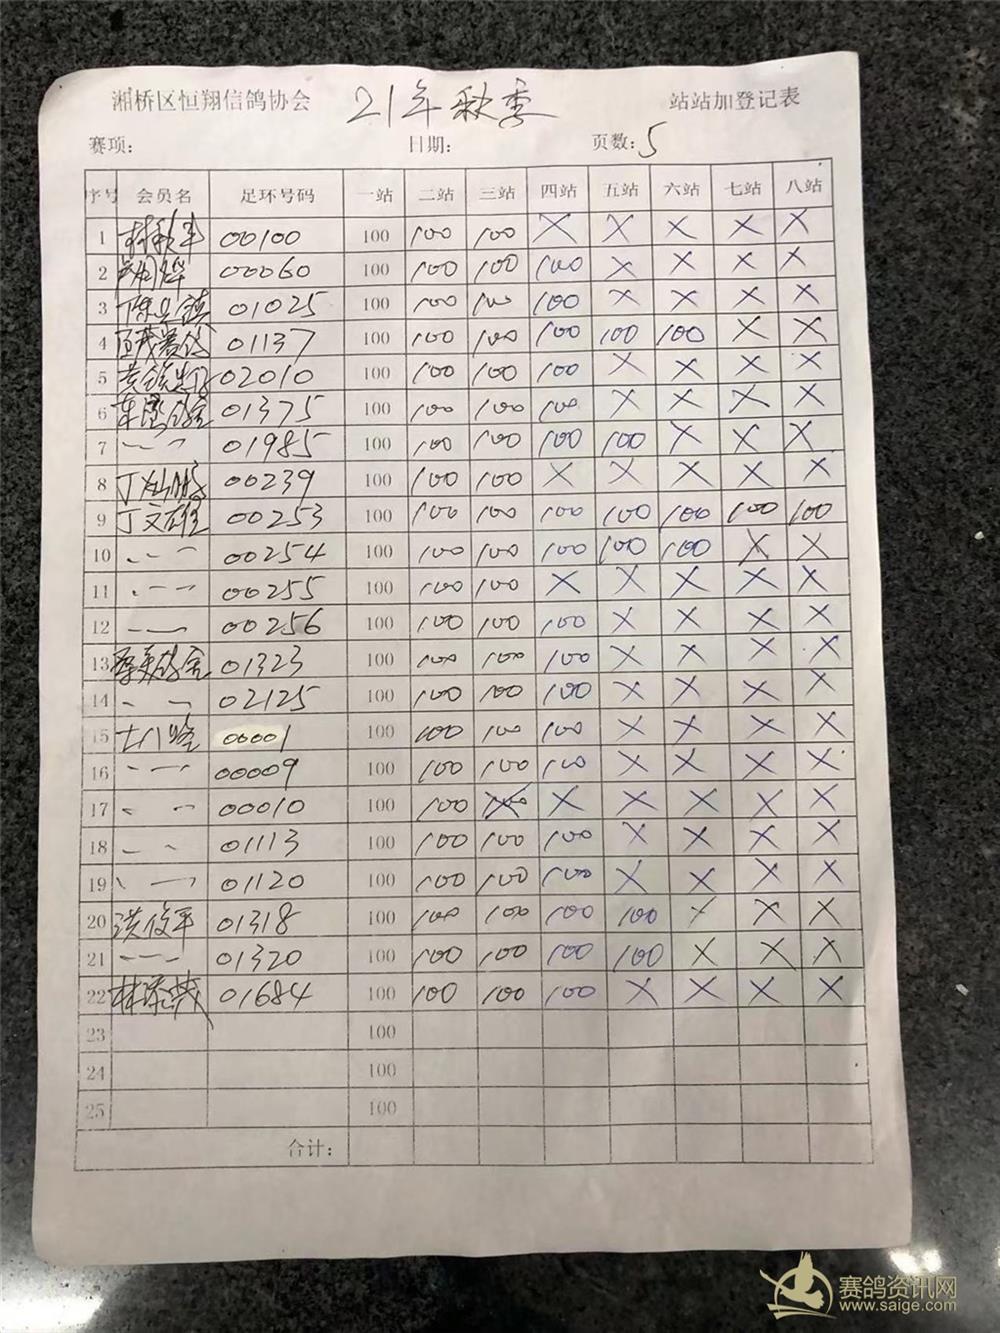 湘桥区恒翔信鸽协会 21年秋季 站站加登记表
赛项: 日期: 页数:5
序号 会员名 足环号码 一站 二站 三站 四站 五站 六站 七站 八站
1 00100 100 100 100 X X X X X
2 00060 100 100 100 100 X X X X
3 01025 100 100 100 100 X X X X
4 01137 100 100 100 100 100 100 X X
5 02010 100 100 100 100 X X X X
6 01375 100 100 100 100 X X X X
7 -- 〃 01985 100 100 100 100 100 X X X
8 00239 100 100 100 X X X X X
9 丁文雄 00253 100 100 100 100 100 100 100 100
10 -- 〃 00254 100 100 100 100 100 100 X X
11 -- 〃 00255 100 100 100 X X X X X
12 -- 〃 00256 100 100 100 100 X X X X
13 01323 100 100 100 100 X X X X
14 -- 〃 02125 100 100 100 100 X X X X
15 00001 100 100 100 100 X X X X
16 -- 〃 00009 100 100 100 100 X X X X
17 -- 〃 00010 100 100 X X X X X X
18 -- 〃 01113 100 100 100 100 X X X X
19 -- 〃 01120 100 100 100 100 X X X X
20 洪俊平 01318 100 100 100 100 100 X X X
21 -- 〃 01320 100 100 100 100 100 X X X
22 01684 100 100 100 100 X X X X
23 100
24 100
25 100
合计:
赛鸽资讯网
www.saige.com